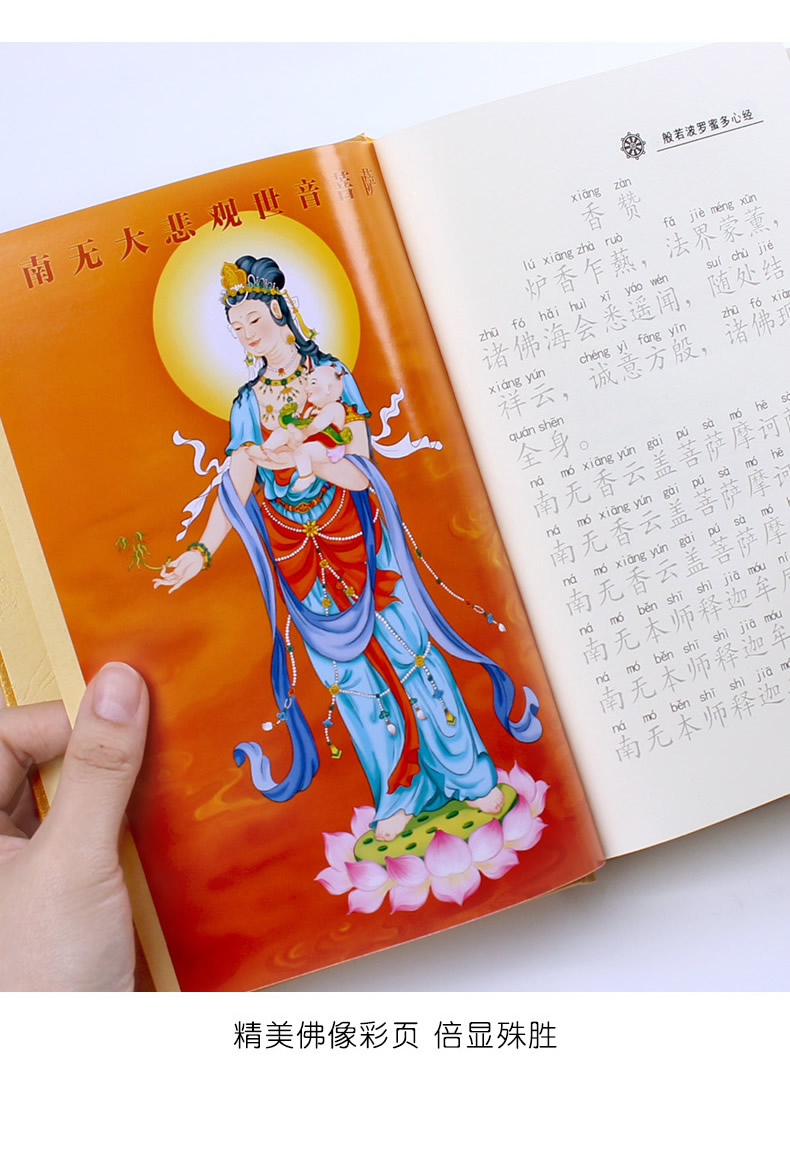 南无大悲观世音菩萨
般若波罗蜜多心经
xiāng zàn
香赞
lú xiāng zhà ruò fǎ jiè méng xūn
炉香乍爇，法界蒙薰，
zhū fó hǎi huì xī yáo wén suí chù jié
诸佛海会悉遥闻，随处结
xiáng yún chéng yì fāng yīn zhū fó xiàn
祥云，诚意方殷，诸佛现
quán shēn
全身。
ná mó xiāng yún gài pú sà mó hē sà
南无香云盖菩萨摩诃萨
ná mó xiāng yún gài pú sà mó hē
南无香云盖菩萨摩诃
ná mó xiāng yún gài pú sà mó
南无香云盖菩萨摩
ná mó běn shī shì jiā móu ní
南无本师释迦牟尼
ná mó běn shī shì jiā móu
南无本师释迦牟
ná mó běn shī shì jiā
南无本师释迦
精美佛像彩页 倍显殊胜